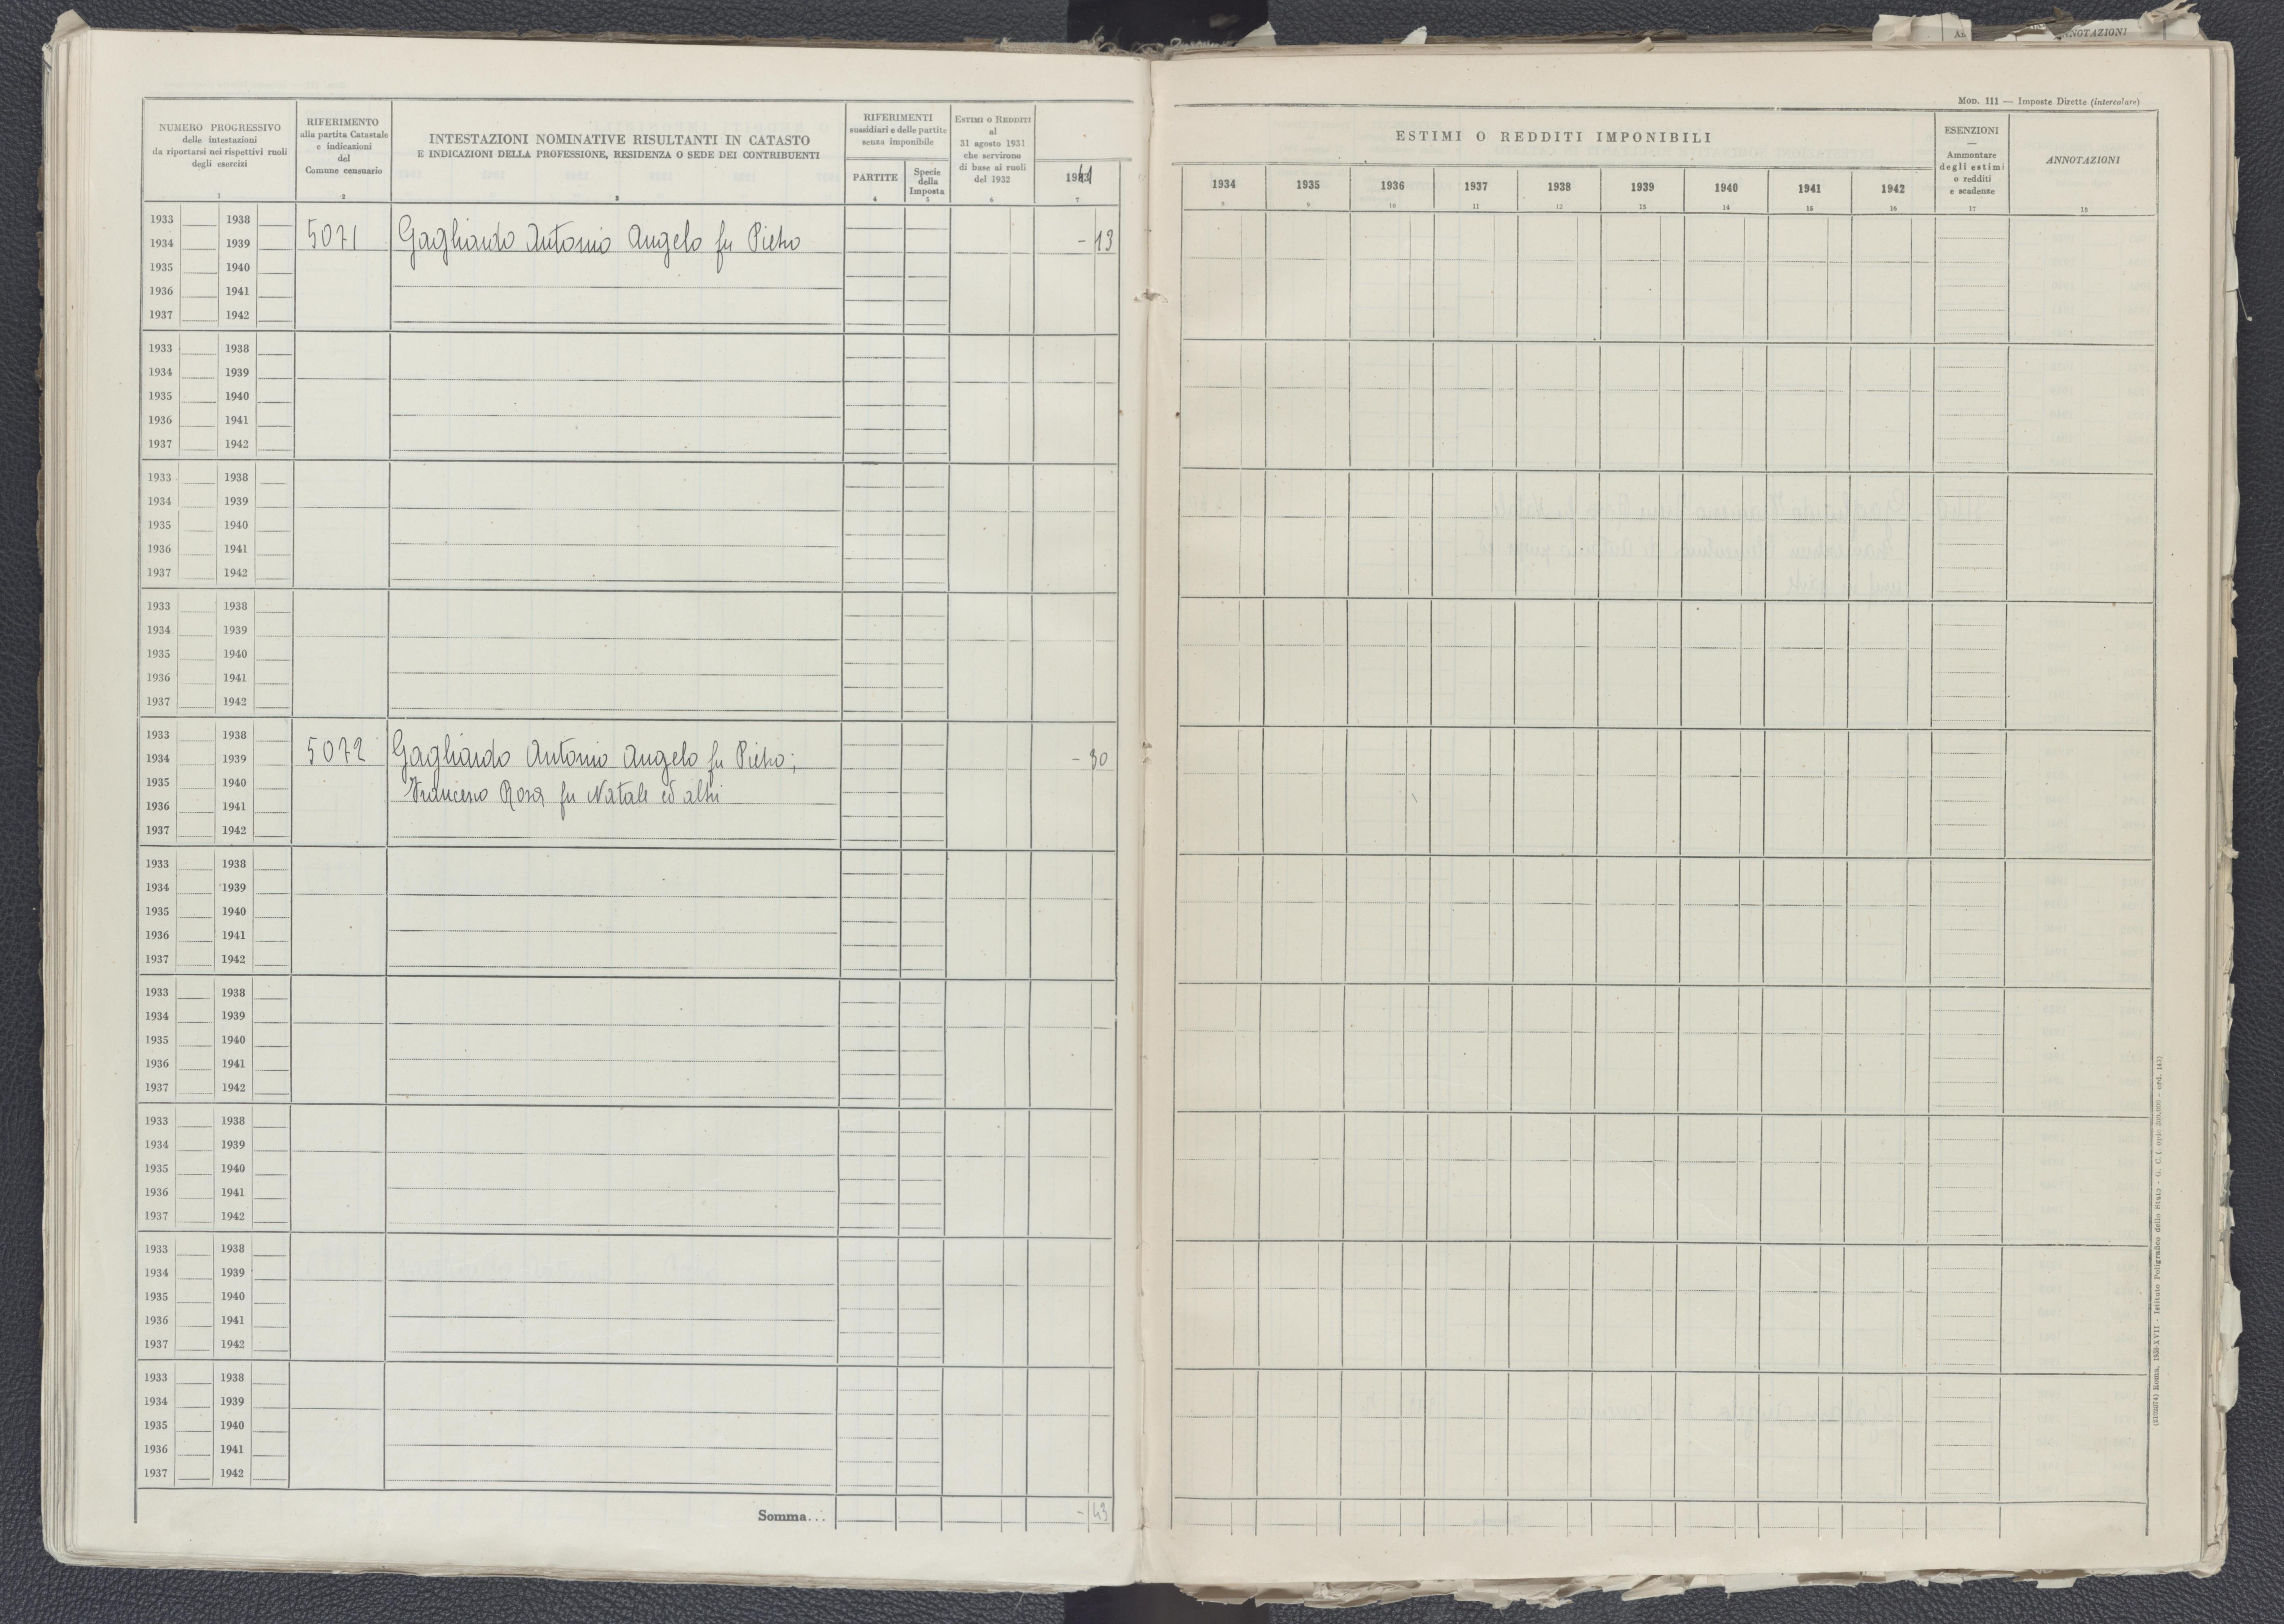 NUMERO PROGRESSIVO
delle intestazioni
da riportarsi nei rispettivi ruoli
degli esercizi
1
RIFERIMENTO
alla partita Catastale
e indicazioni
del
Comune censuario
2
INTESTAZIONI NOMINATIVE RISULTANTI IN CATASTO
E INDICAZIONI DELLA PROFESSIONE, RESIDENZA O SEDE DEI CONTRIBUENTI
3
RIFERIMENTI
sussidiari e delle partite
senza imponibile
PARTITE
4
Specie
della
Imposta
5
ESTIMI O REDDITI
al
31 agosto 1931
che servirono
di base ai ruoli
del 1932
6
7
1933 1938
5071 Gagliardo Antonio Angelo fu Pietro - 13
1934 1939
1935 1940
1936 1941
1937 1942
1933 1938
1934 1939
1935 1940
1936 1941
1937 1942
1933 1938
1934 1939
1935 1940
1936 1941
1937 1942
1933 1938
1934 1939
1935 1940
1936 1941
1937 1942
1933 1938
5072 Gagliardo Antonio Angelo fu Pietro; - 30
1934 1939
1935 1940
Rosa fu Natale ed altri
1936 1941
1937 1942
1933 1938
1934 1939
1935 1940
1936 1941
1937 1942
1933 1938
1934 1939
1935 1940
1936 1941
1937 1942
1933 1938
1934 1939
1935 1940
1936 1941
1937 1942
1933 1938
1934 1939
1935 1940
1936 1941
1937 1942
1933 1938
1934 1939
1935 1940
1936 1941
1937 1942
Somma... - 43
ANNOTAZIONI
MOD. 111 — Imposte Dirette (intercalare)
ESTIMI O REDDITI IMPONIBILI
1934 1935 1936 1937 1938 1939 1940 1941 1942
8 9 10 11 12 13 14 15 16
ESENZIONI
—
Ammontare
degli estimi
o redditi
e scadenze
17
ANNOTAZIONI
18
Roma, - Istituto Poligrafico dello Stato - G. C.